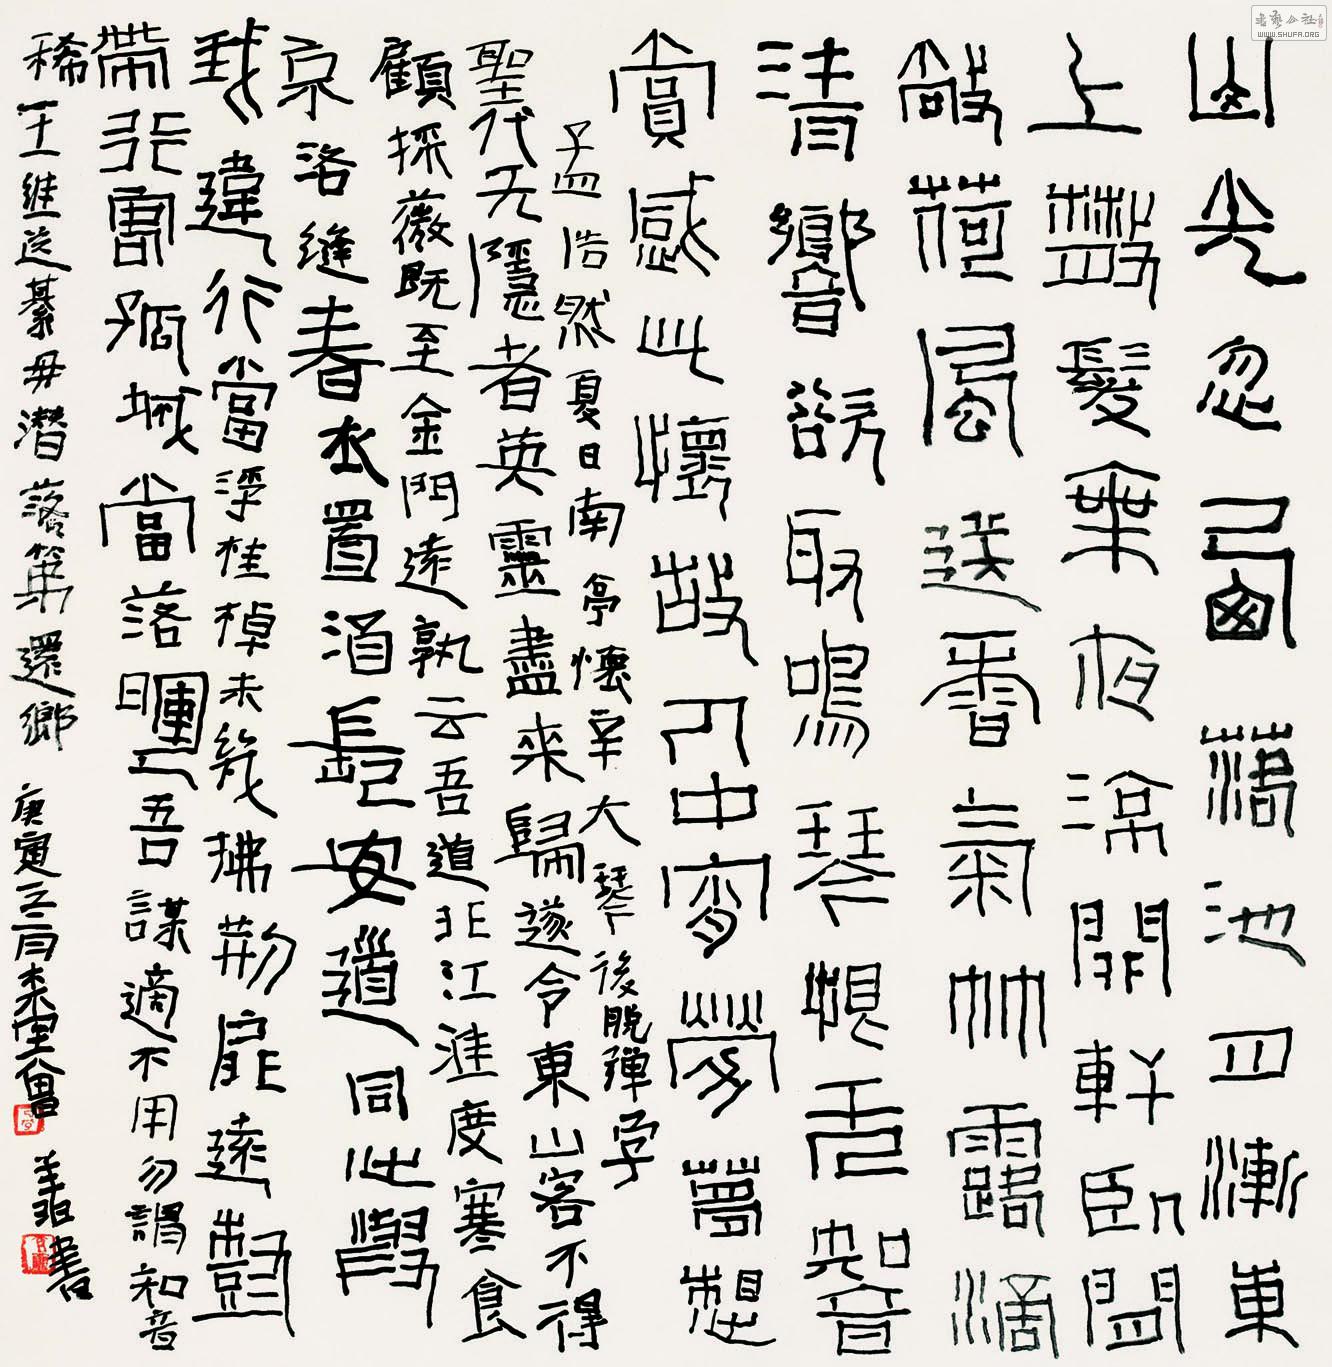 山光忽西落池月漸東
上散髮乘夜涼開軒臥閒
敞荷風送香氣竹露滴
清響欲取鳴琴恨无知音
賞感此懷故人中宵勞夢想
孟浩然夏日南亭懷辛大琴後脫彈字
聖代无隱者英靈盡来歸遂令東山客不得
顧採薇既至金門遠孰云吾道非江淮度寒食
京洛縫春衣置酒長安道同心與
我違行當浮桂棹未幾拂荊扉遠樹
帶行客孤城當落暉吾謀適不用勿謂知音
稀 王維送綦毋潛落第還鄉 庚寅 曾翔書
书艺公社
WWW.SHUFA.ORG